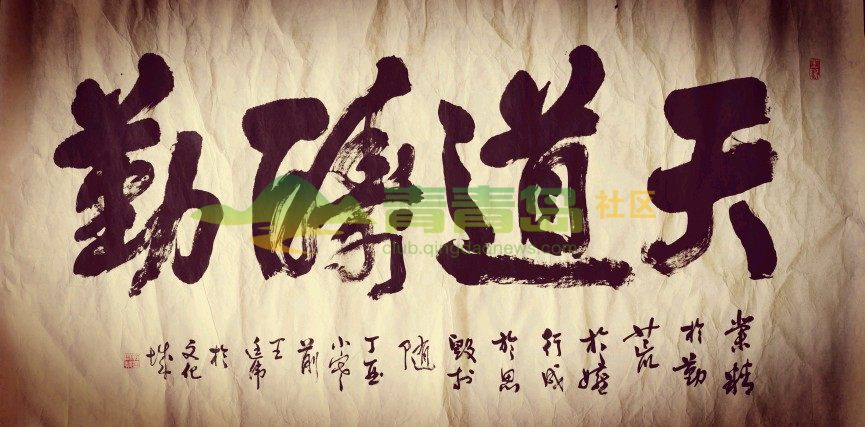 天道酬勤
業精
於勤
荒
於嬉
行成
於思
毀於
随
丁亥
小寒
前
王
於
文化
城
青青岛社区
club.qingdaonews.com